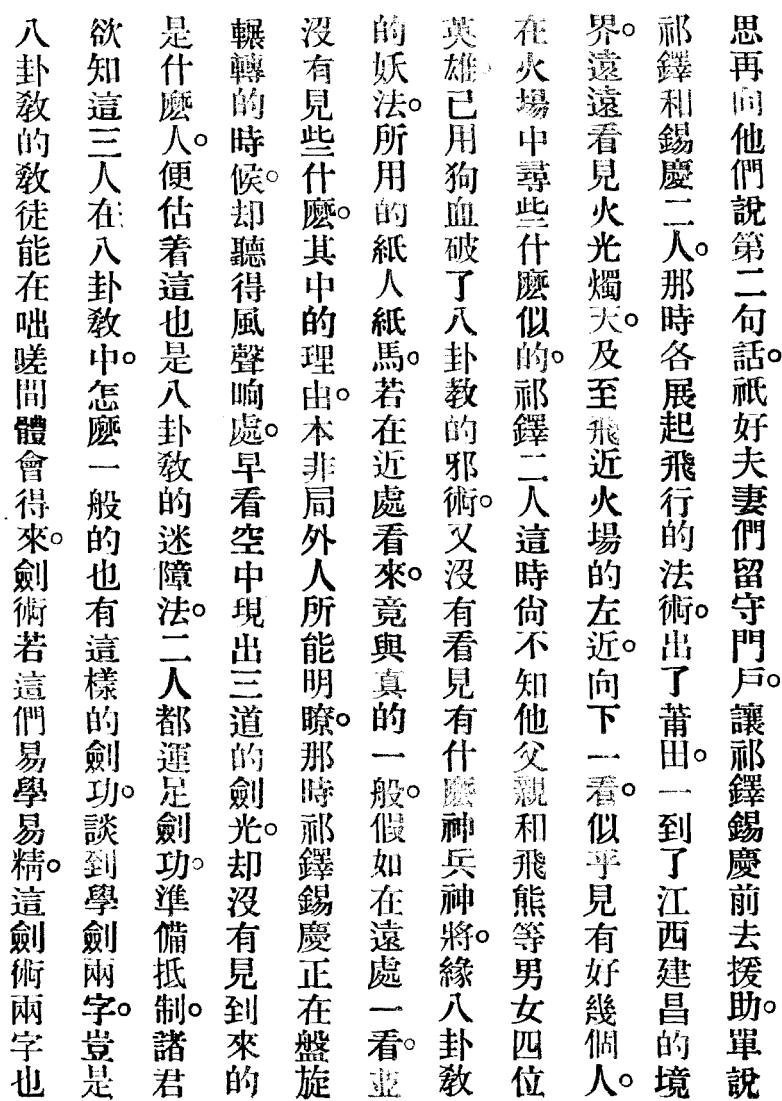 思再向他們說第二句話。祇好夫妻們留守門戶。讓祁鐸錫慶前去援助。單說
祁鐸和錫慶二人。那時各展起飛行的法術。出了莆田。一到了江西建昌的境
界。遠遠看見火光燭天。及至飛近火場的左近。向下一看。似乎見有好幾個人。
在火場中尋些什麼似的。祁鐸二人這時尙不知他父親和飛熊等男女四位
英雄。已用狗血破了八卦教的邪術。又沒有看見有什麼神兵神將。緣八卦敎
的妖法。所用的紙人紙馬。若在近處看來。竟與真的一般。假如在遠處一看。並
沒有見些什麼。其中的理由。本非局外人所能明瞭。那時祁鐸錫慶正在盤旋
輾轉的時候。却聽得風聲响處。早看空中現出三道的劍光。却沒有見到來的
是什麼人。便估着這也是八卦敎的迷障法。二人都運足劍功。準備抵制。諸君
欲知這三人在八卦敎中。怎麼一般的也有這樣的劍功。談到學劍兩字。豈是
八卦敎的敎徒能在咄嗟間體會得來。劍術若這們易學易精。這劍術兩字也